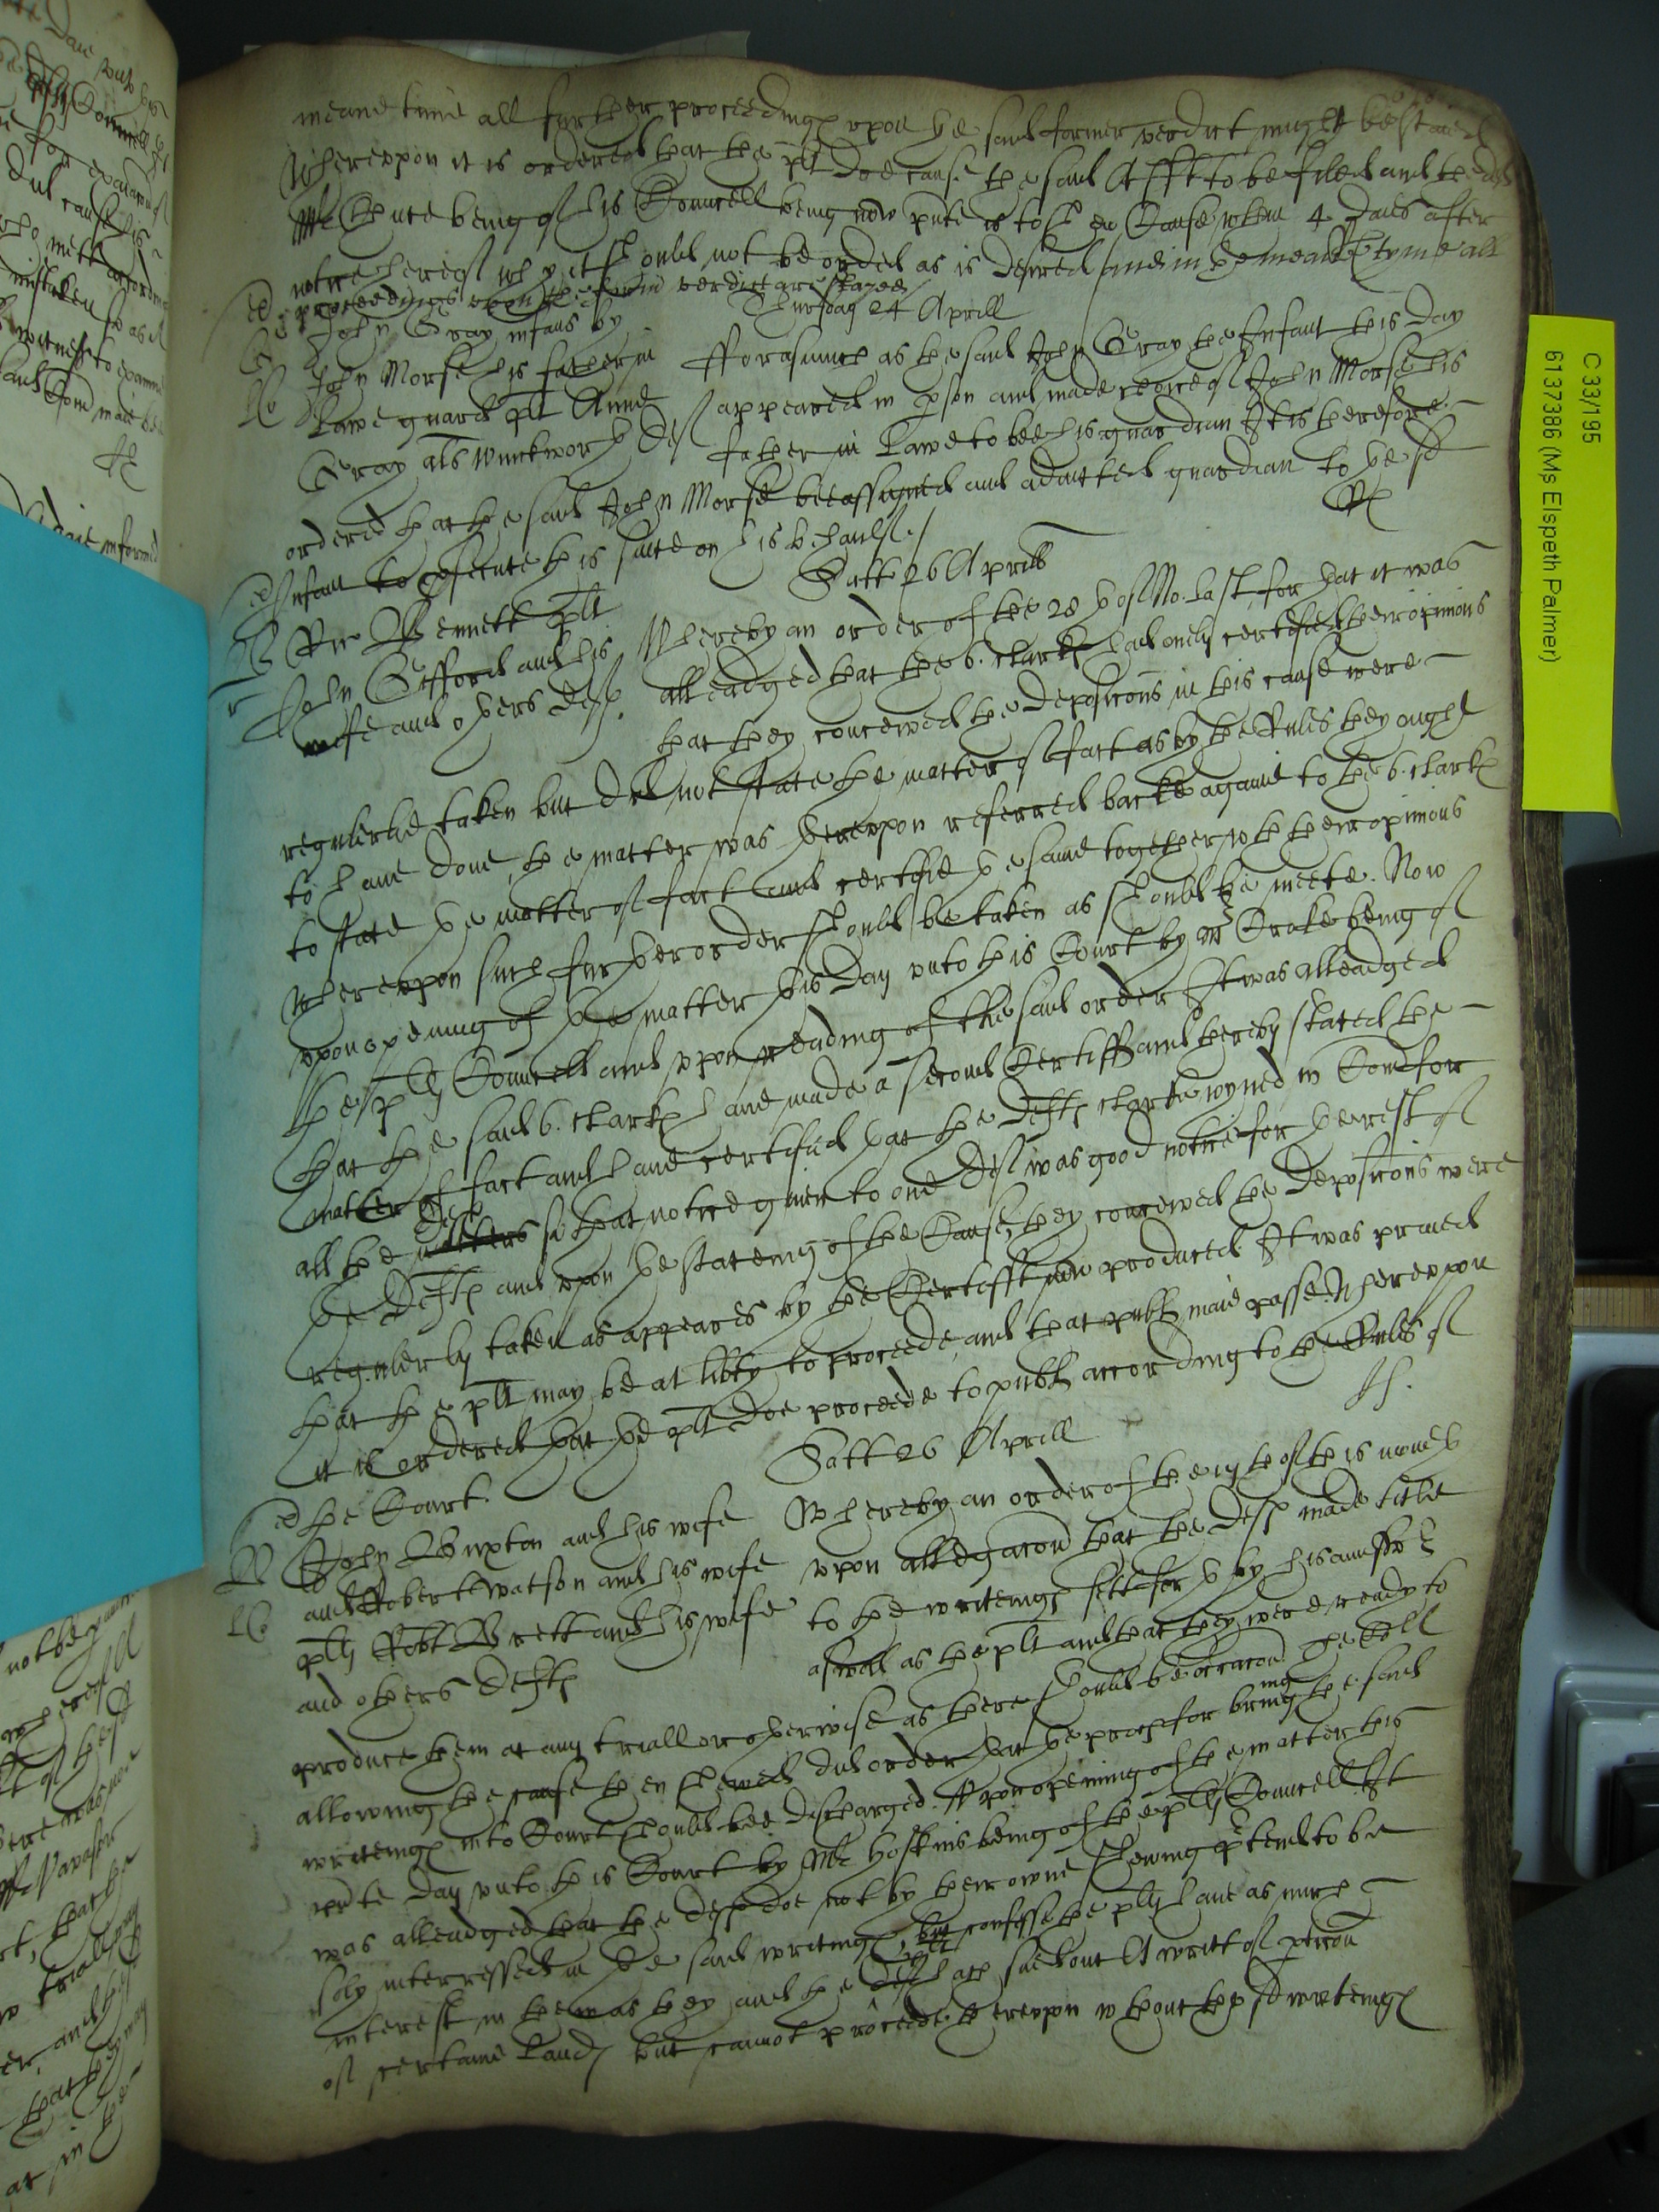 meane time all further proceedings upon the said former verdict might be staied
Whereupon it is ordered that the plt doe cause the said Afft to be filed and the deft
Mr Chute being of his Councell being now pnte is to shew Cause within 4 daies after
notice hereof why it should not be ordered as is desired and in the meane tyme all
proceedings upon the said verdict are stayed
Thursday 24 Aprill
John Gray infans by
John Morse his father in
Lawe guard plt Anne
Gray als Winckworth deft
Forasmuch as the said John Gray the Infant this day
appeared in pson and made choice of John Morse his
father in Lawe to bee his guardian It is therefore
ordered that the said John Morse bee assigned and admitted guardian to the sd
Infant to psecute this suite on his behaulf
Satt 26 Aprill
Bennett plt
John Gifford and his
wife and others defts
Whereby an order of the 28th of No. last, for that it was
alleadged that the 6. clarks had onely certified their opinions
that they conceived the deposicons in this cause were
regulerlie taken but did not state the matter of fact as by the Rules they ought
to have done, the matter was thereupon referred backe againe to the 6. clarks
to state the matter of fact and certifie the same together wth their opinions
whereupon such further order should be taken as should be meete. Now
upon opening of the matter this day unto this Court by Mr Croke being of
the plts Councell and upon reading of the said order It was alleadged
that the said 6. clarks have made a second Certiff and thereby stated the
matter of fact and have certified that the defts clarke ioyned in Com for
all the matters defts so that notice given to one deft was good notice for the rest of
the defts and upon the stateing of the Cause, they conceived the deposicons were
regulerly taken as appeares by the Certifft now produced It was praied
that the plt may be at libty to proceede, and that publ maie passe. Whereupon
it is ordered that the plt doe proceede to publ according to the Rules of
the Court.
Satt 26 Aprill
John Buxton and his wife
and Robert Watson and his wife
plts Robt Brett and his wife
and others defts
Whereby an order of the of this moneth
upon allegacon that the defts made title
to the writeings sett forth by his answere
aswell as the plt and that they were ready to
produce them at any triall or otherwise as there should be occacon
allowing the cause then shewed did order that the proces for bringing the said
writeings into Court should bee discharged. Upon opening of the matter this
pnte day unto this Court by Mr Hoskins being of the plts Councell It
was alleadged that the defts doe not by their owne shewing ptend to be
soly interessed in the said writings, but confesse the plts have as much
interest in them as they and the plt hath sued out A writt of pticon
of certaine Lands but cannot proceede thereupon wthout the sd writeings
C 33/195
6137386 (Ms Elspeth Palmer)